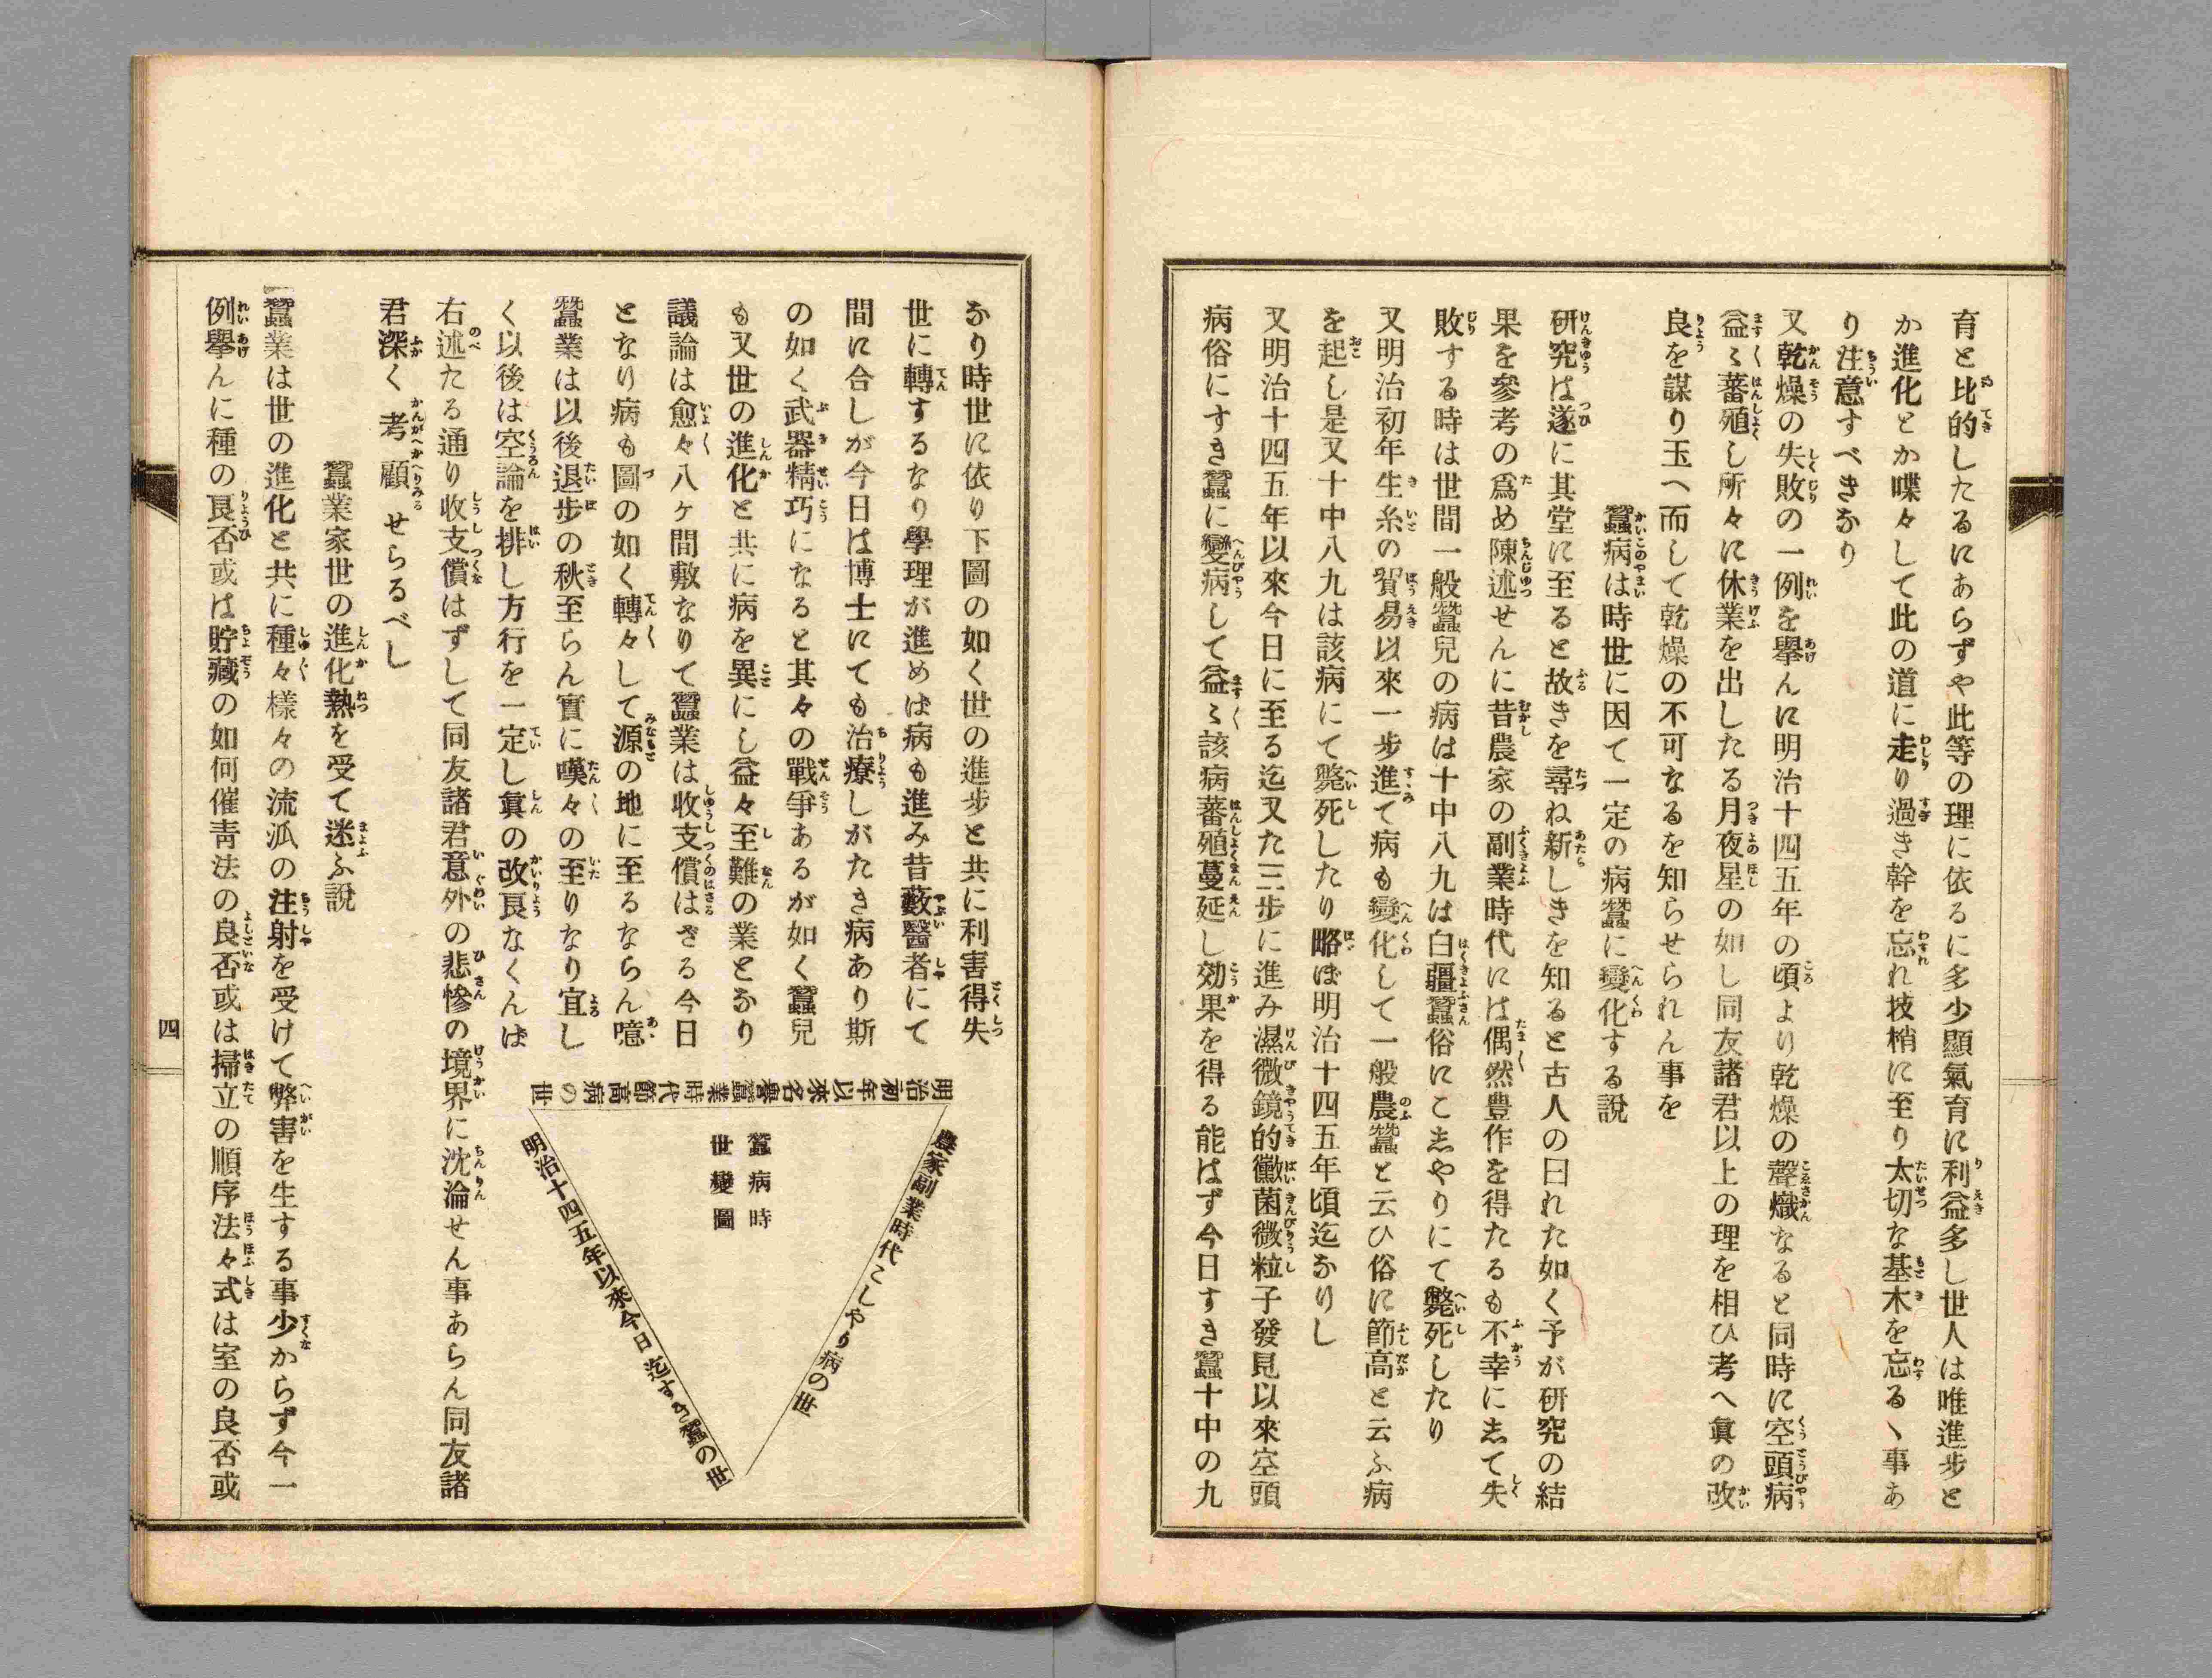 育と比的したるにあらずや此等の理に依るに多少顯氣育に利益多し世人は唯進步と
か進化とか喋々して此の道に走り過き幹を忘れ枝梢に至り太切な基木を忘るヽ事あ
り注意すべきなり
又乾燥の失敗の一例を擧んに明治十四五年の頃より乾燥の聲熾なると同時に空頭病
益〻蕃殖し所々に休業を出したる月夜星の如し同友諸君以上の理を相ひ考へ眞の改
良を謀り玉へ而して乾燥の不可なるを知らせられん事を
蠶病は時世に因て一定の病蠶に變化する說
研究は遂に其堂に至ると故きを尋ね新しきを知ると古人の曰れた如く予が研究の結
果を參考の爲め陳述せんに昔農家の副業時代には偶然豊作を得たるも不幸にして失
敗する時は世間一般蠶兒の病は十中八九は白疆蠶俗にこしやりにて斃死したり
又明治初年生糸の貿易以來一步進て病も變化して一般農蠶と云ひ俗に節高と云ふ病
を起し是又十中八九は該病にて斃死したり略ぼ明治十四五年頃迄なりし
又明治十四五年以來今日に至る迄又た三步に進み濕微鏡的黴菌微粒子發見以來空頭
病俗にすき蠶に變病して益〻該病蕃殖蔓延し効果を得る能はず今日すき蠶十中の九
なり時世に依り下圖の如く世の進步と共に利害得失
世に轉するなり學理が進めば病も進み昔藪醫者にて
間に合しが今日は博士にても治療しがたき病あり斯
の如く武器精巧になると其々の戰爭あるが如く蠶兒
も又世の進化と共に病を異にし益々至難の業となり
議論は愈々八ヶ間敷なりて蠶業は收支償はざる今日
となり病も圖の如く轉々して源の地に至るならん噫
蠶業は以後退步の秋至らん實に嘆々の至りなり宜し
く以後は空論を排し方行を一定し眞の改良なくんば
農家副業時代こしやり病の世
明治初年以來名譽蠶業時代節高病の世
明治十四五年以來今日迄すき蠶の世
蠶病時
世變圖
右述たる通り收支償はずして同友諸君意外の悲慘の境界に沈淪せん事あらん同友諸
君深く考顧せらるべし
蠶業家世の進化熱を受て迷ふ說
蠶業は世の進化と共に種々樣々の流派の注射を受けて弊害を生する事少からず今一
例擧んに種の良否或は貯藏の如何催靑法の良否或は掃立の順序法々式は室の良否或
四